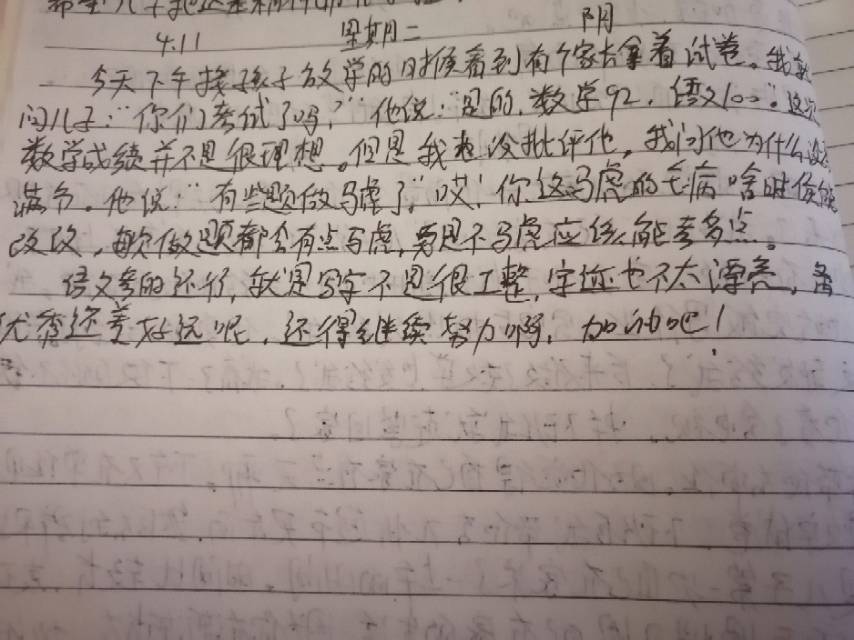 4.11 星期二 阴
今天下午接孩子放学的时候看到有个家长拿着试卷。我就
问儿子:“你们考试了吗?”他说:“是的,数学92,语文100。这次
数学成绩并不是很理想。但是我也没批评他,我问他为什么没
满分。他说:“有些题做马虎了,”哎!你这马虎的毛病啥时候能
改改,每次做题都会有点马虎,要是不马虎应该能考多点。
语文考的还行,就是写字不是很工整,字迹也不太漂亮,离
优秀还差好远呢,还得继续努力啊,加油吧!